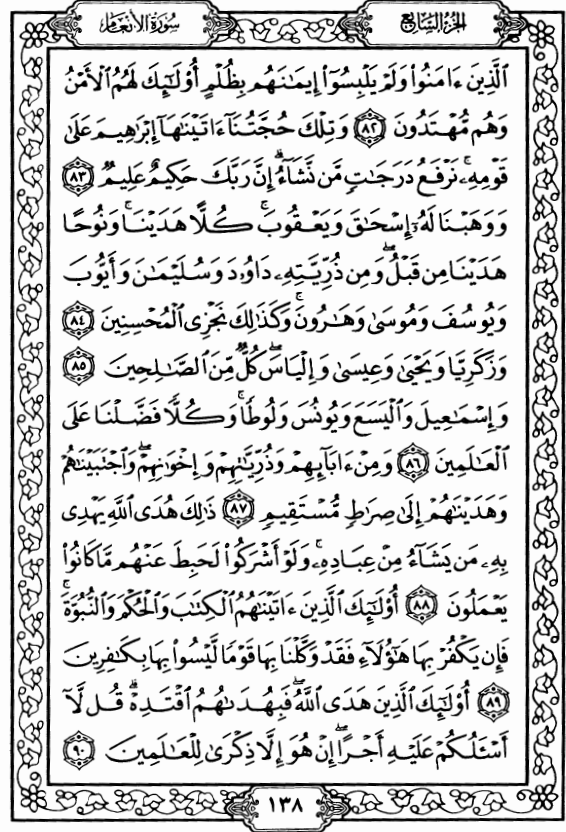 سورة الأنعام
الجزء السابع
الَّذِينَ ءَامَنُوا۟ وَلَمْ يَلْبِسُوٓا۟ إِيمَٰنَهُم بِظُلْمٍ أُو۟لَٰٓئِكَ لَهُمُ الْأَمْنُ
وَهُم مُّهْتَدُونَ ٨٢ وَتِلْكَ حُجَّتُنَآ ءَاتَيْنَٰهَآ إِبْرَٰهِيمَ عَلَىٰ
قَوْمِهِۦ ۚ نَرْفَعُ دَرَجَٰتٍ مَّن نَّشَآءُ ۗ إِنَّ رَبَّكَ حَكِيمٌ عَلِيمٌ ٨٣
وَوَهَبْنَا لَهُۥٓ إِسْحَٰقَ وَيَعْقُوبَ ۚ كُلًّا هَدَيْنَا ۚ وَنُوحًا
هَدَيْنَا مِن قَبْلُ ۖ وَمِن ذُرِّيَّتِهِۦ دَاوُۥدَ وَسُلَيْمَٰنَ وَأَيُّوبَ
وَيُوسُفَ وَمُوسَىٰ وَهَٰرُونَ ۚ وَكَذَٰلِكَ نَجْزِى الْمُحْسِنِينَ ٨٤
وَزَكَرِيَّا وَيَحْيَىٰ وَعِيسَىٰ وَإِلْيَاسَ ۖ كُلٌّ مِّنَ الصَّٰلِحِينَ ٨٥
وَإِسْمَٰعِيلَ وَالْيَسَعَ وَيُونُسَ وَلُوطًا ۚ وَكُلًّا فَضَّلْنَا عَلَى
الْعَٰلَمِينَ ٨٦ وَمِنْ ءَابَآئِهِمْ وَذُرِّيَّٰتِهِمْ وَإِخْوَٰنِهِمْ ۖ وَاجْتَبَيْنَٰهُمْ
وَهَدَيْنَٰهُمْ إِلَىٰ صِرَٰطٍ مُّسْتَقِيمٍ ٨٧ ذَٰلِكَ هُدَى اللَّهِ يَهْدِى
بِهِۦ مَن يَشَآءُ مِنْ عِبَادِهِۦ ۚ وَلَوْ أَشْرَكُوا۟ لَحَبِطَ عَنْهُم مَّا كَانُوا۟
يَعْمَلُونَ ٨٨ أُو۟لَٰٓئِكَ الَّذِينَ ءَاتَيْنَٰهُمُ الْكِتَٰبَ وَالْحُكْمَ وَالنُّبُوَّةَ ۚ
فَإِن يَكْفُرْ بِهَا هَٰٓؤُلَآءِ فَقَدْ وَكَّلْنَا بِهَا قَوْمًا لَّيْسُوا۟ بِهَا بِكَٰفِرِينَ
٨٩ أُو۟لَٰٓئِكَ الَّذِينَ هَدَى اللَّهُ ۖ فَبِهُدَىٰهُمُ اقْتَدِهْ ۗ قُل لَّآ
أَسْـَٔلُكُمْ عَلَيْهِ أَجْرًا ۖ إِنْ هُوَ إِلَّا ذِكْرَىٰ لِلْعَٰلَمِينَ ٩٠
١٣٨